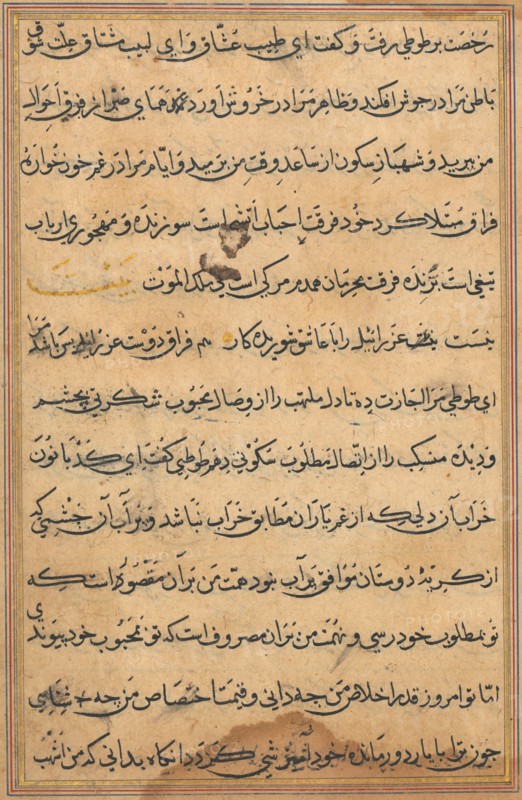 رخصت بر طوطی رفت و گفت ای طبیب عشاق و ای لبیب مشاق علت شوق
باطن مرا در جوش افکند و ظاهر مرا در خروش آورد همای صبر از فرق احوال
من پرید و شهباز سکون از ساعد وقت من برمید و ایام مرا در غم خود خواره
فراق مبتلا کرد خود فرقت احباب آتشی است سوزنده و مهجوری ارباب
تیغی است برنده فرقت محرمان همدم مرگی است بی ملک الموت بیت
نیست عزرائیل را با عاشق شوریده کار هم فراق دوست عزرائیل بس باشد مرا
ای طوطی مرا اجازت ده تا دل ملتهب را از وصال محبوب شکرتی بچشم
و دیده منسکب را از اتصال مطلوب سکونی دهم طوطی گفت ای کدبانو
خراب آن دلی که از غم یاران مطابق خراب نباشد و پر آب آن چشمی که
از کریهٔ دوستان موافق پر آب بود همت من بر آن مقصور است که
تو بمطلوب خود رسی و نهمت من بر آن مصروف است که تو بمحبوب خود پیوندی
اما تو امروز قدر اخلاص من چه دانی و قیمت اختصاص من چه شناسی
چون ترا با یار دور مانده خود آمیزشی گردد آنگاه بدانی که من